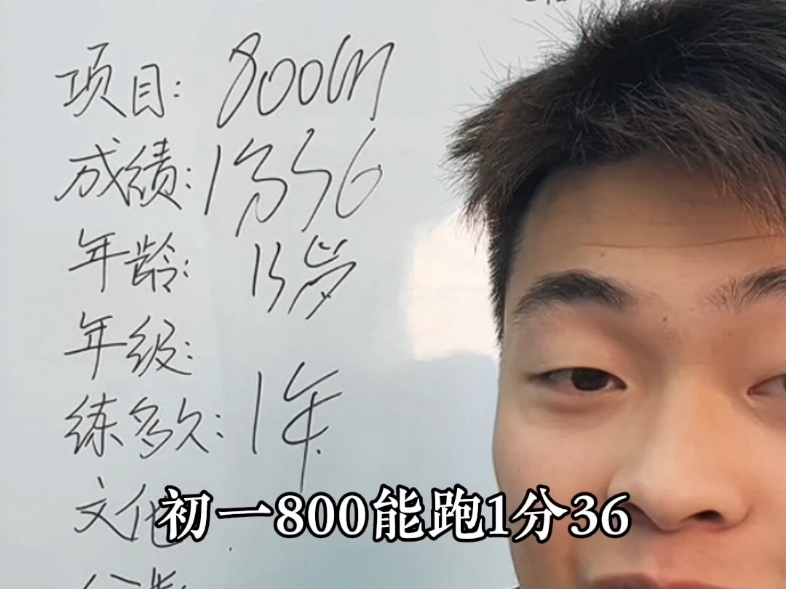 项目: 800m
成绩: 1分36
年龄: 13岁
年级:
练多久: 1年
文化
初一800能跑1分36